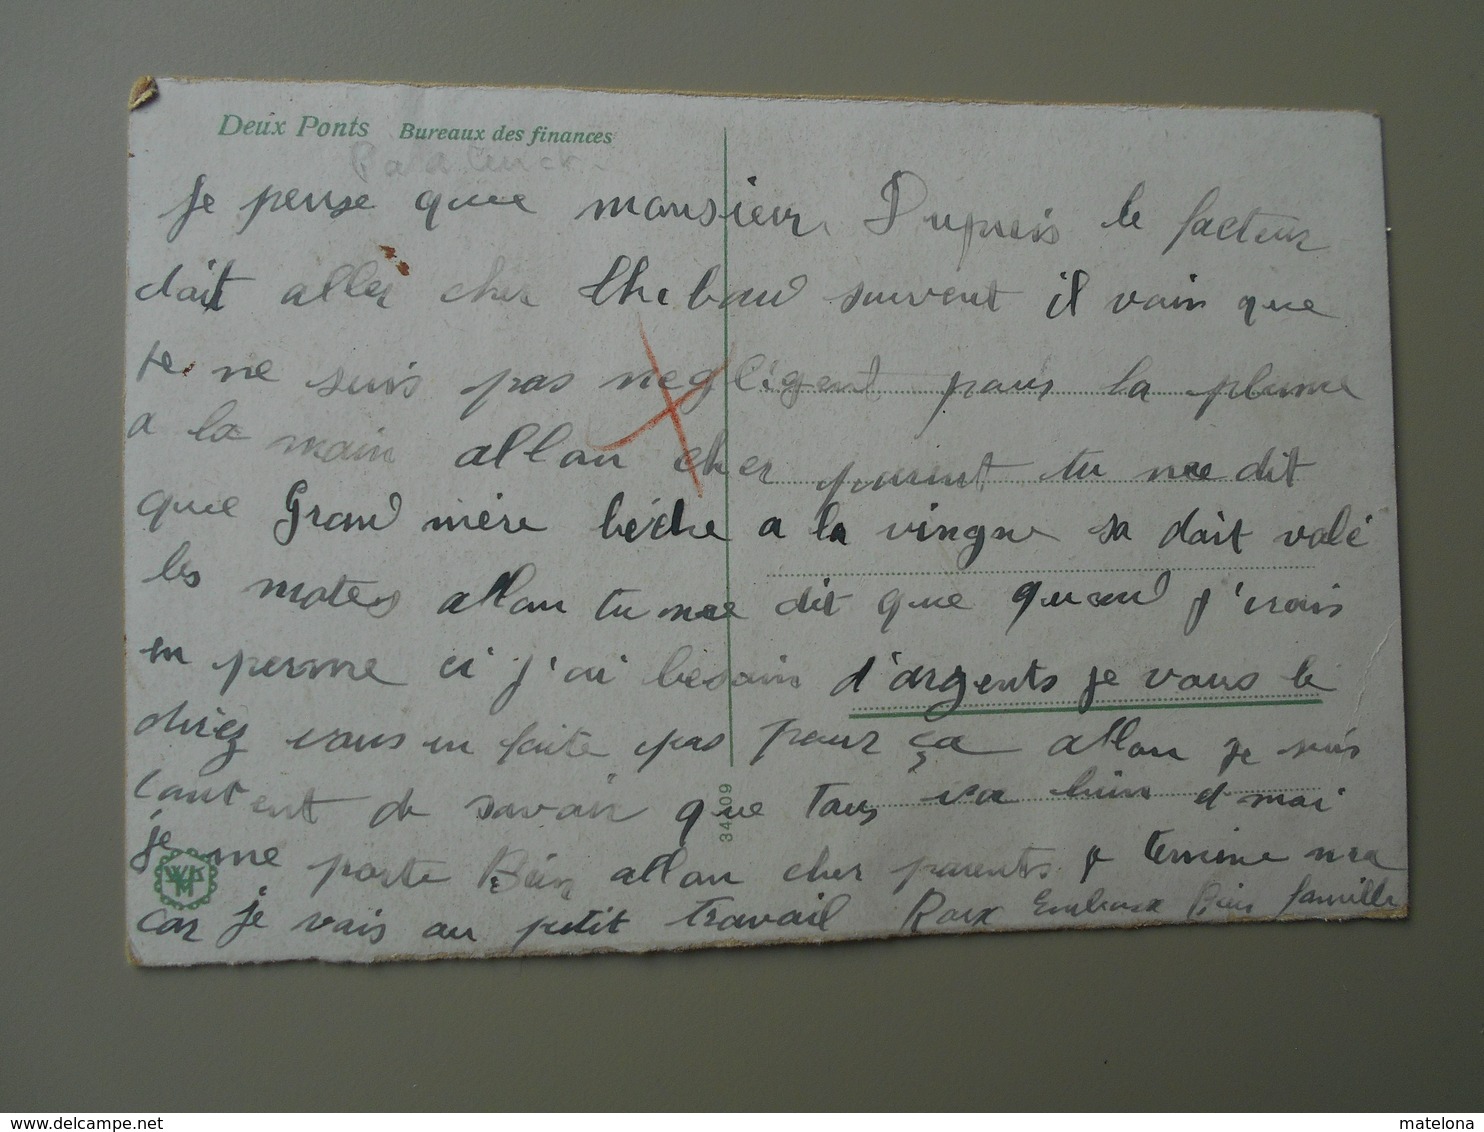 Deux Ponts Bureaux des finances
Je pense quee monsieur Dupuis le facteur
dait aller cher thebaud souvent il vain que
te ne suis pas negligent pour la plume
a la main allon cher parent tu me dit
que Grand mère bèche a la vingne sa dait valé
les motes allon tu me dit que quand j'irais
en perme ci j'ai besoin d'argents je vous le
direz vous en faite pas pour ça allon je suis
content de savoir que tous va bien et moi
je me porte Bien allon cher parents je termine ma
car je vais au petit travail Roux Embrasse Bien famille
34309
matelona
www.delcampe.net